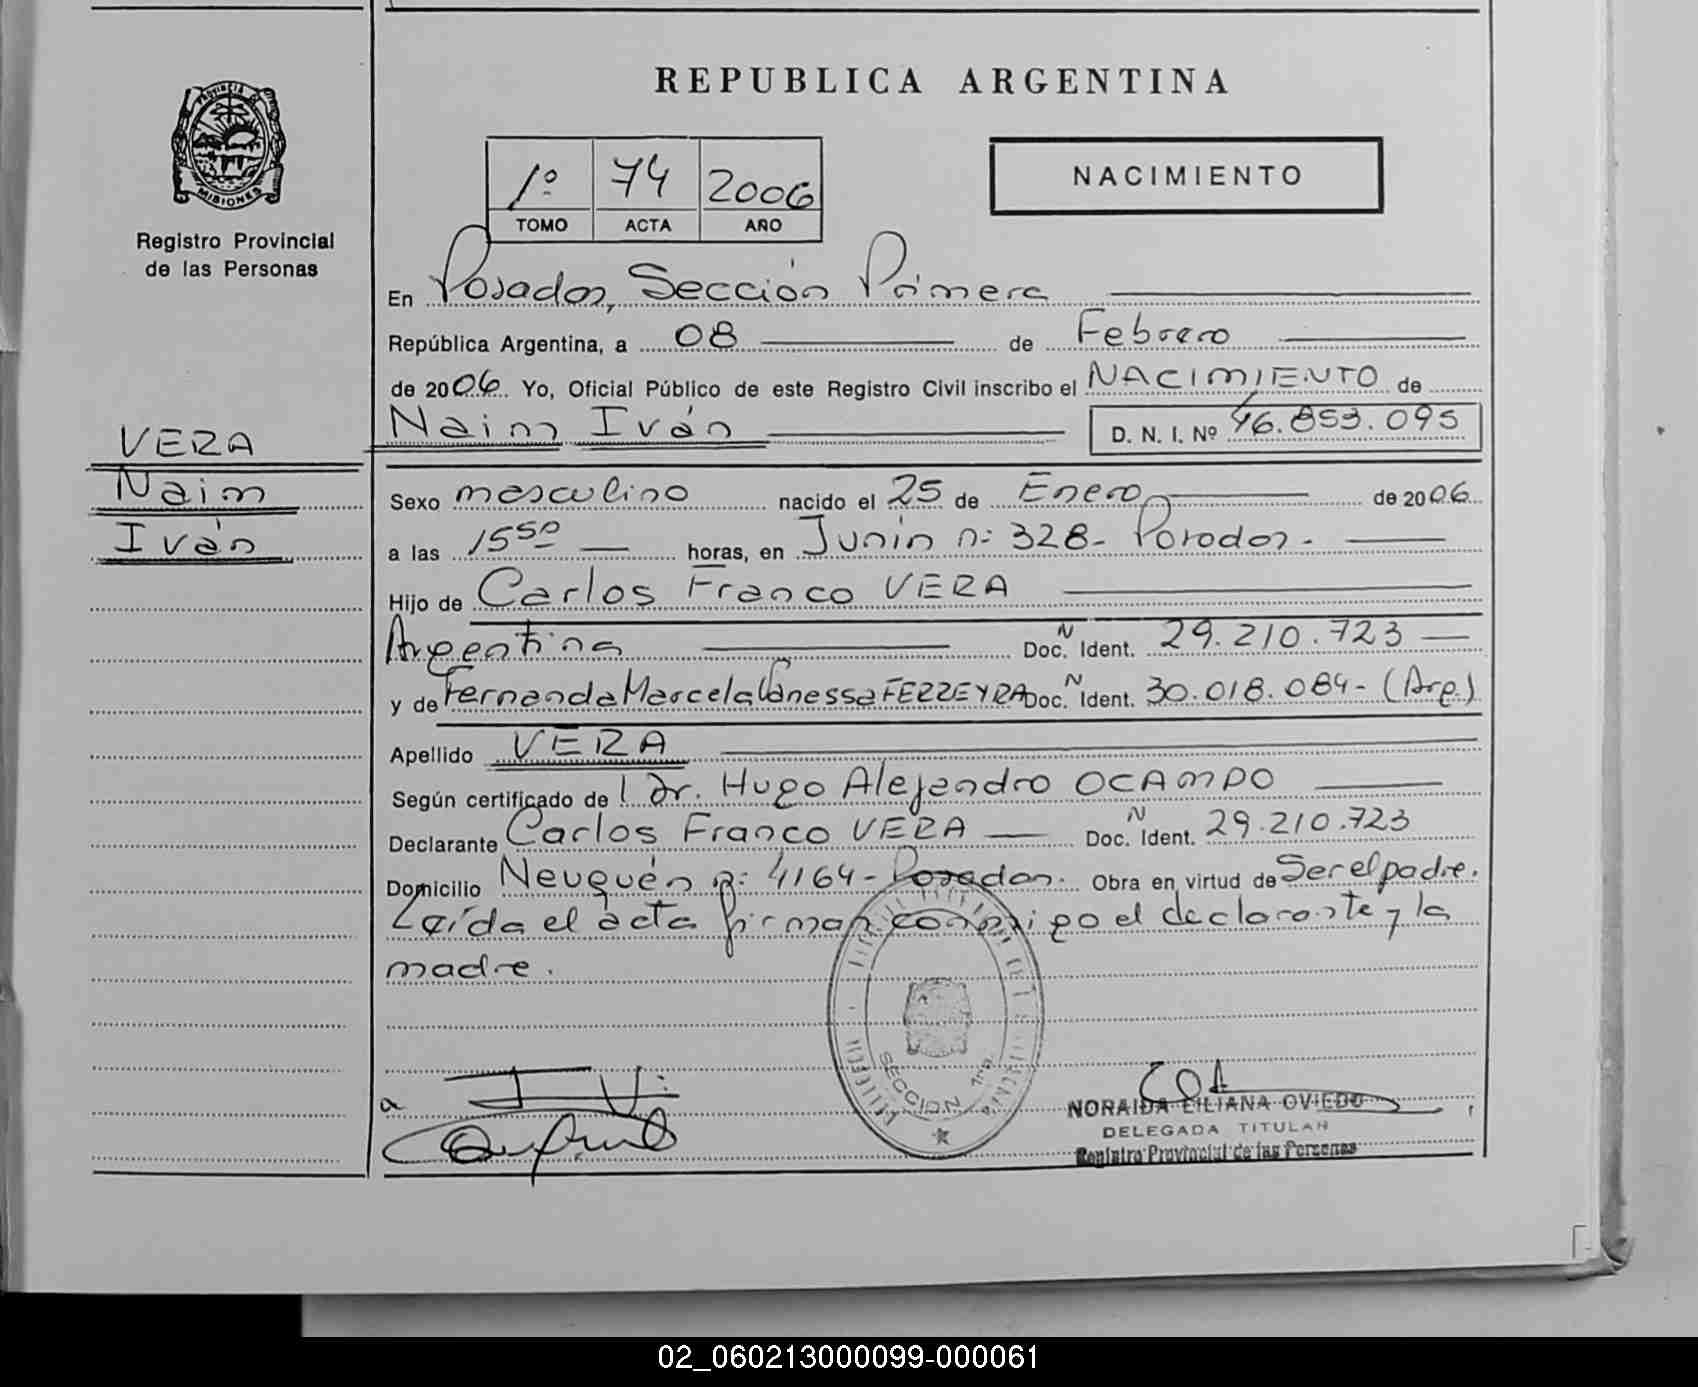 REPUBLICA ARGENTINA
PROVINCIA DE
MISIONES
Registro Provincial
de las Personas
1º 74 2006
TOMO ACTA AÑO
NACIMIENTO
En Posadas, Sección Primera
República Argentina, a 08 de Febrero
de 2006. Yo, Oficial Público de este Registro Civil inscribo el NACIMIENTO de
Naim Iván D. N. I. Nº 46.853.095
VERA
Naim
Iván
Sexo masculino nacido el 25 de Enero de 2006.
a las 15 50 horas, en Junín nº 328- Posadas.-
Hijo de Carlos Franco VERA
Argentina Doc. N Ident. 29.210.723
y de Fernanda Marcela Vanessa FERREYRA Doc. N Ident. 30.018.084- (Arg.)
Apellido VERA
Según certificado del Dr. Hugo Alejandro OCAMPO
Declarante Carlos Franco VERA Doc. N Ident. 29.210.723
Domicilio Neuquén nº 4164- Posadas. Obra en virtud de Ser el padre.
Leída el acta firman conmigo el declarante y la
madre.
SECCION 1ra.
NORAIDA LILIANA OVIEDO
DELEGADA TITULAR
Registro Provincial de las Personas
02_060213000099-000061